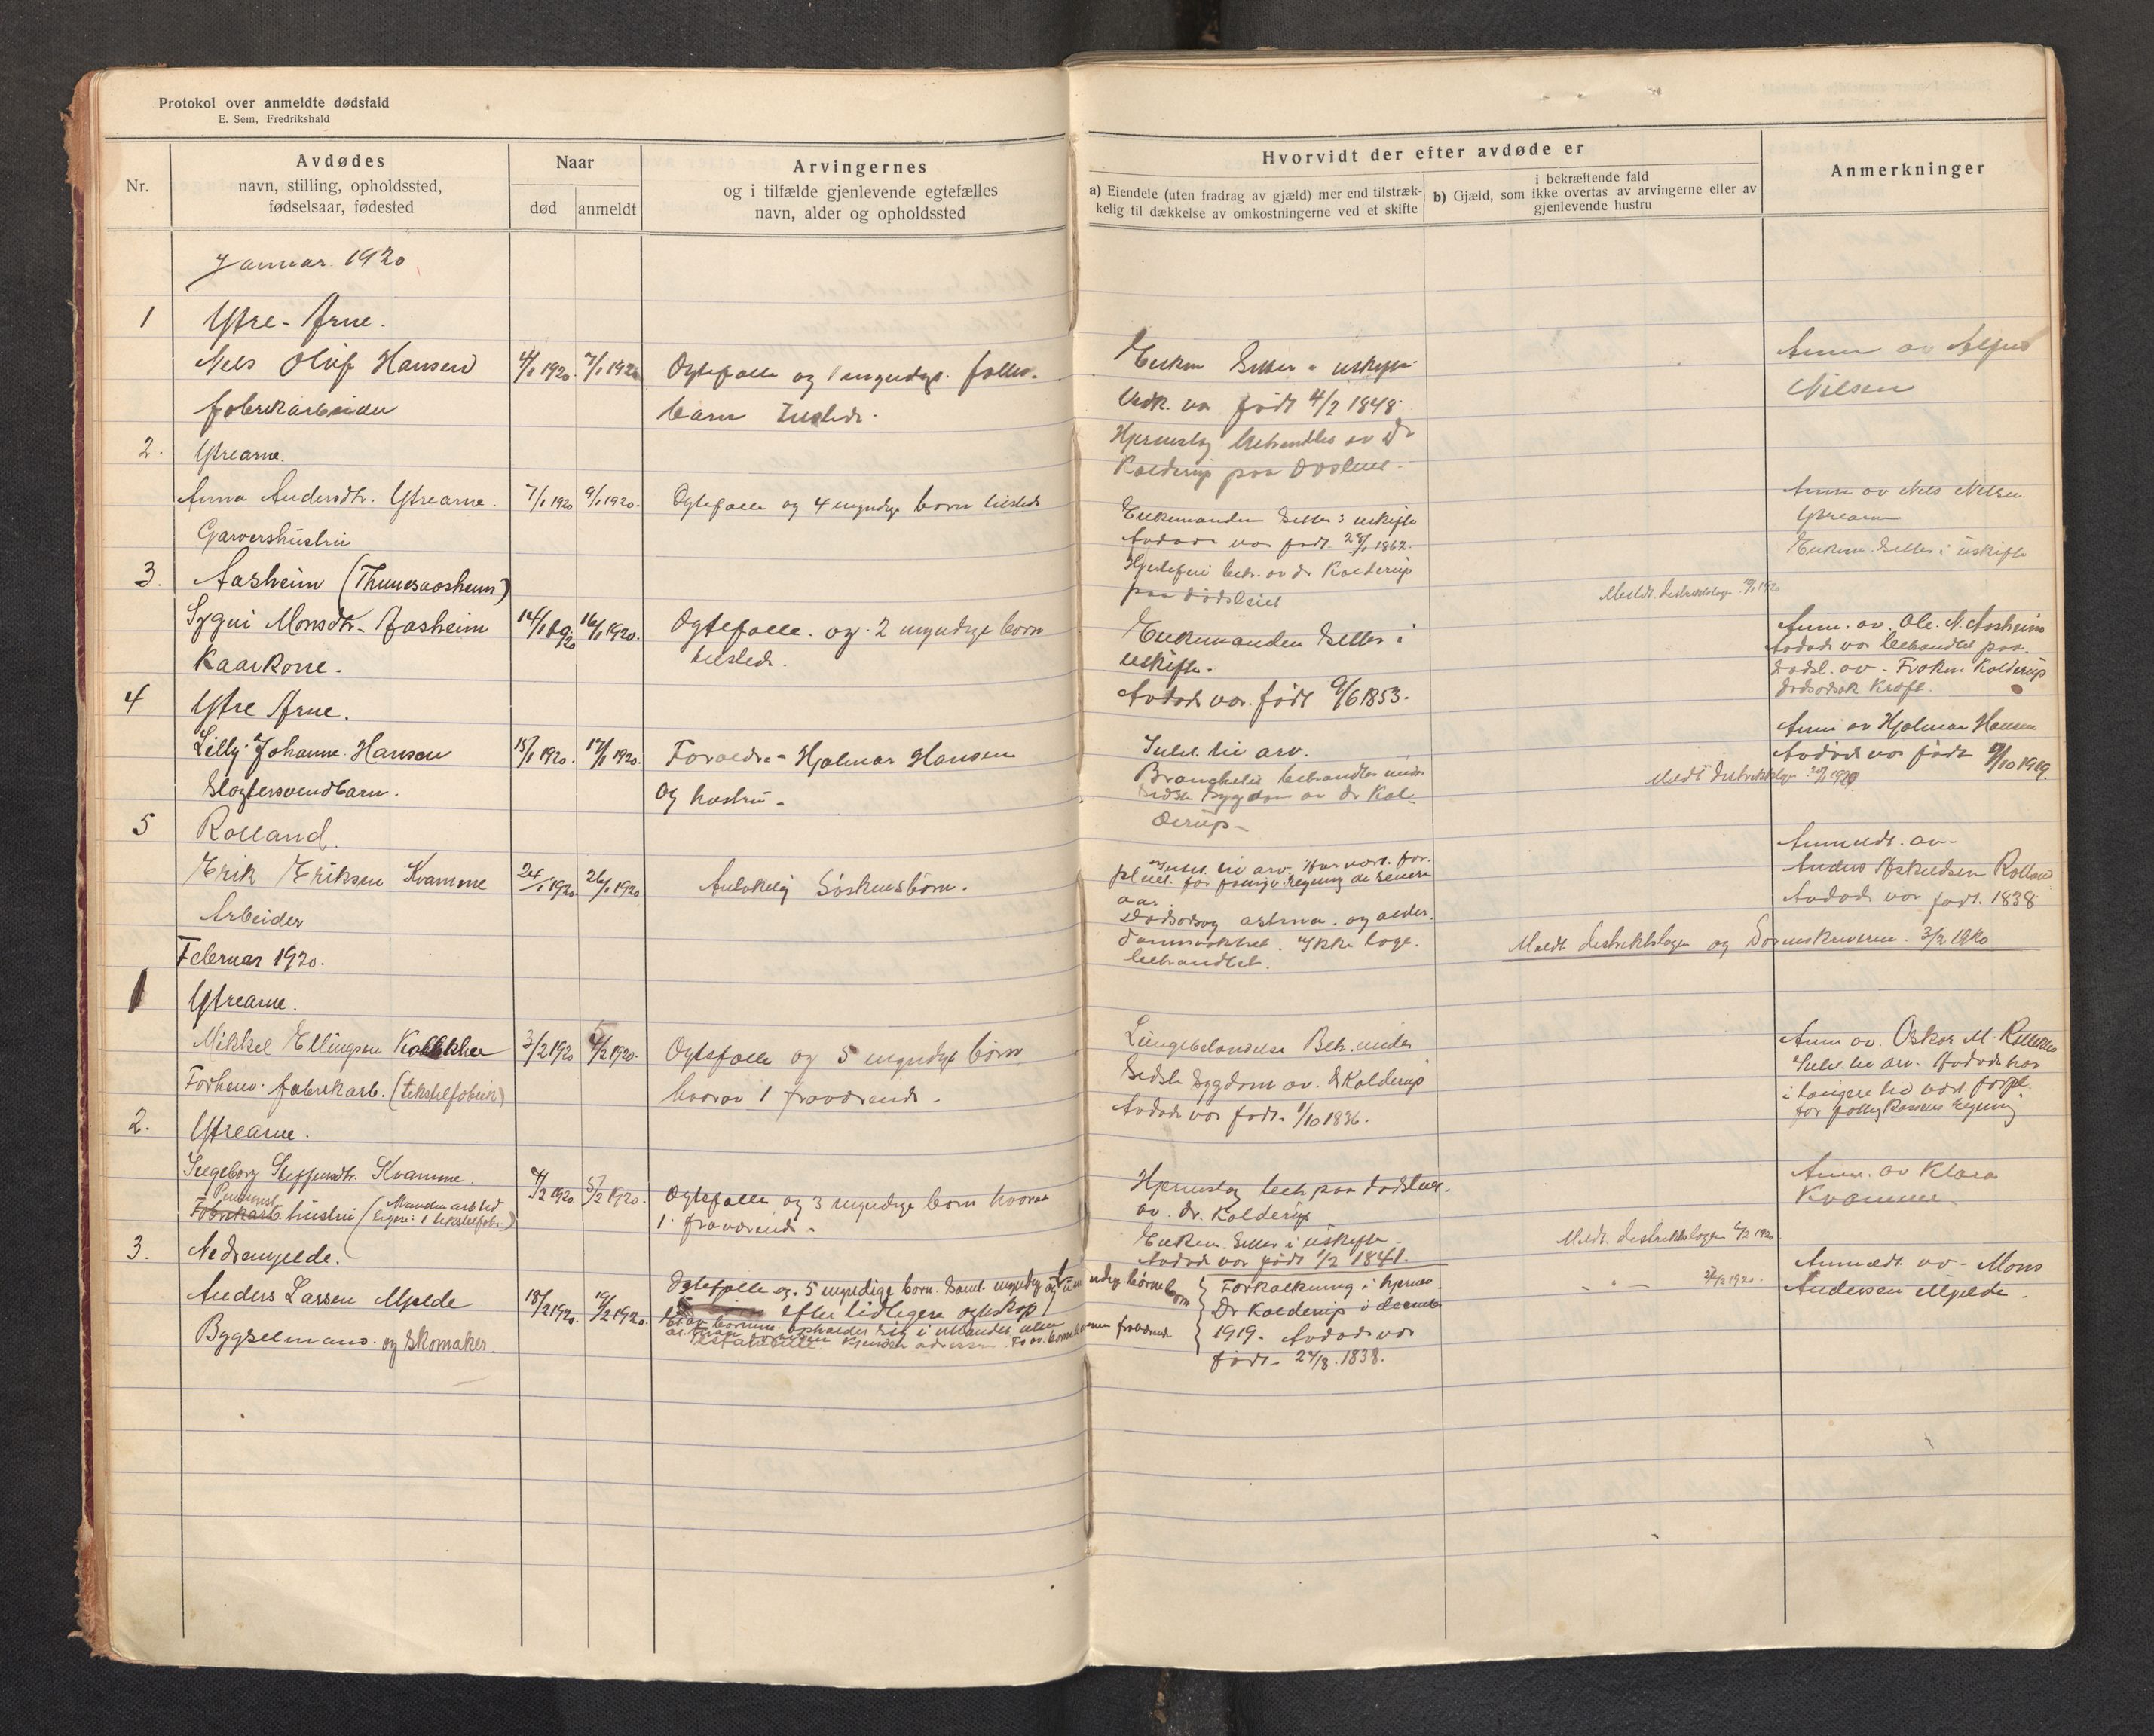 Protokol over anmeldte dødsfald
E. Sem, Fredrikshald
Nr.
Avdødes
navn, stilling, opholdssted,
fødselsaar, fødested
Naar
død
anmeldt
Arvingernes
og i tilfælde gjenlevende egtefælles
navn, alder og opholdssted
Hvorvidt der efter avdøde er
a) Eiendele (uten fradrag av gjæld) mer end tilstræk-
kelig til dækkelse av omkostningerne ved et skifte
i bekræftende fald
b) Gjæld, som ikke overtas av arvingerne eller av
gjenlevende hustru
Anmerkninger
Januar 1920
1
Ytre-Arne.
Nels Oluf Hansen
fabrikarbeider
4/1 1920.
7/1 1920
Ogtefælle og 1 myndig
barn tilstede.
Enken sitter i uskifte
født 4/2 1848
Hjerneslag behandlet av Dr
Kolderup paa dødsleiet.
Anm av
Nilsen
2.
Ytrearne.
Anna Andersdtr. Ytrearne.
Garvershustru
7/1 1920
9/1 1920.
Ogtefælle og 4 myndige born tilstede
Enkemanden sitter i uskifte
Avdøde var født 28/1 1862.
Hjertefeil beh. av dr Kolderup
paa dødsleiet
Anm av Nels Nilsen
Ytrearne
Enkem. sitter i uskifte
Meldt distriktslægen 10/1 1920
3.
Aasheim (Thunesaasheim)
Sygni Monsdtr. Aasheim
Kaarkone.
14/1 1920
16/1 1920.
Ogtefælle og 2 myndige born
tilstede.
Enkemanden sitter i
uskifte.
Avdøde var født 9/6 1853.
Anm. av Ole N. Aasheim
Avdøde var behandlet paa
dødsl. av Frøken Kolderup
dødsårsak Kræft.
4
Ytre Arne.
Lilly Johanne Hansen
Slagtersvendbarn.
15/1 1920.
17/1 1920.
Forældre Hjalmar Hansen
og hustru.
Intet til arv.
Bronchitis behandlet under
sidste sygdom av dr Kol-
derup
Anm av Hjalmar Hansen
Avdøde var født 9/10 1919.
Meldt distriktslægen
5
Rolland.
Erik Eriksen Kvamme
Arbeider
24/1 1920.
26/1 1920
Antakelig Søskensbørn.
Intet til arv. Har vært for-
pleiet for regning de senere
aar.
Dødsårsag astma og alder-
domssvakhet. Ikke læge-
behandlet.
Anmeldt av
Anders Askildsen Rolland
Avdøde var født 1838
Meldt distriktslægen og Sorenskriveren 3/2 1920
Februar 1920.
1
Ytrearne.
Mikkel Ellingsen
Forhenv. fabrikarb. (tekstilfabrik)
3/2 1920
4/2 1920.
Ogtefælle og 5 myndige børn
hvorav 1 fraværende.
Lungebetændelse Beh. under
sidste sygdom av dr Kolderup
Avdøde var født 1/10 1836.
Anm av Oskar M.
Intet til arv. Avdøde har
i længere tid vært forpl.
for fattigkassens regning
2.
Ytrearne.
Ingeborg Steffensdtr. Kvamme.
Fabrikarb. hustru (Manden arbeid
tekstilfabr.)
4/2 1920
5/2 1920.
Ogtefælle og 3 myndige born hvorav
1 fraværende.
Hjerneslag beh paa dødsleiet
av dr. Kolderup
Enkem. sitter i uskifte
Avdøde var født 1/2 1841.
Anm. av Klara
Kvamme
Meldt distriktslægen 6/2 1920
3.
Nedremjelde.
Anders Larsen Mjelde
Bygselmand og Skomaker.
18/2 1920.
19/2 1920.
Ogtefælle og 5 myndige born. Samt myndig og 1 umyndig børnebørn
efter tidligere egteskap
opholder sig i utlandet uten
kjendt adresse
fraværende
Forkalkning i hjernen
Dr Kolderup i decemb.
1919. Avdøde var
født 24/8 1838.
Anmeldt av Mons
Andersen Mjelde.